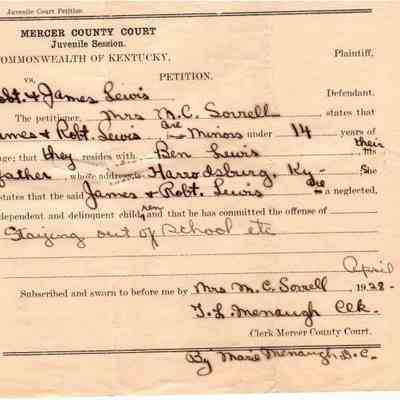 Juvenile Court Petition
MERCER COUNTY COURT
Juvenile Session.
COMMONWEALTH OF KENTUCKY, Plaintiff,
vs. PETITION.
Robt. & James Lewis Defendant.
The petitioner, Mrs M. C. Sorrell states that
James & Robt. Lewis are Minors under 14 years of
age; that they resides with Ben Lewis their
father, whose address is Harrodsburg, Ky. She
states that the said James & Robt. Lewis are a neglected,
dependent and delinquent children and that he has committed the offense of
Staying out of School etc
April
Subscribed and sworn to before me by Mrs M. C. Sorrell, 1928-
T. L. Menaugh Clk.
Clerk Mercer County Court.
By Marie Menaugh D. C.